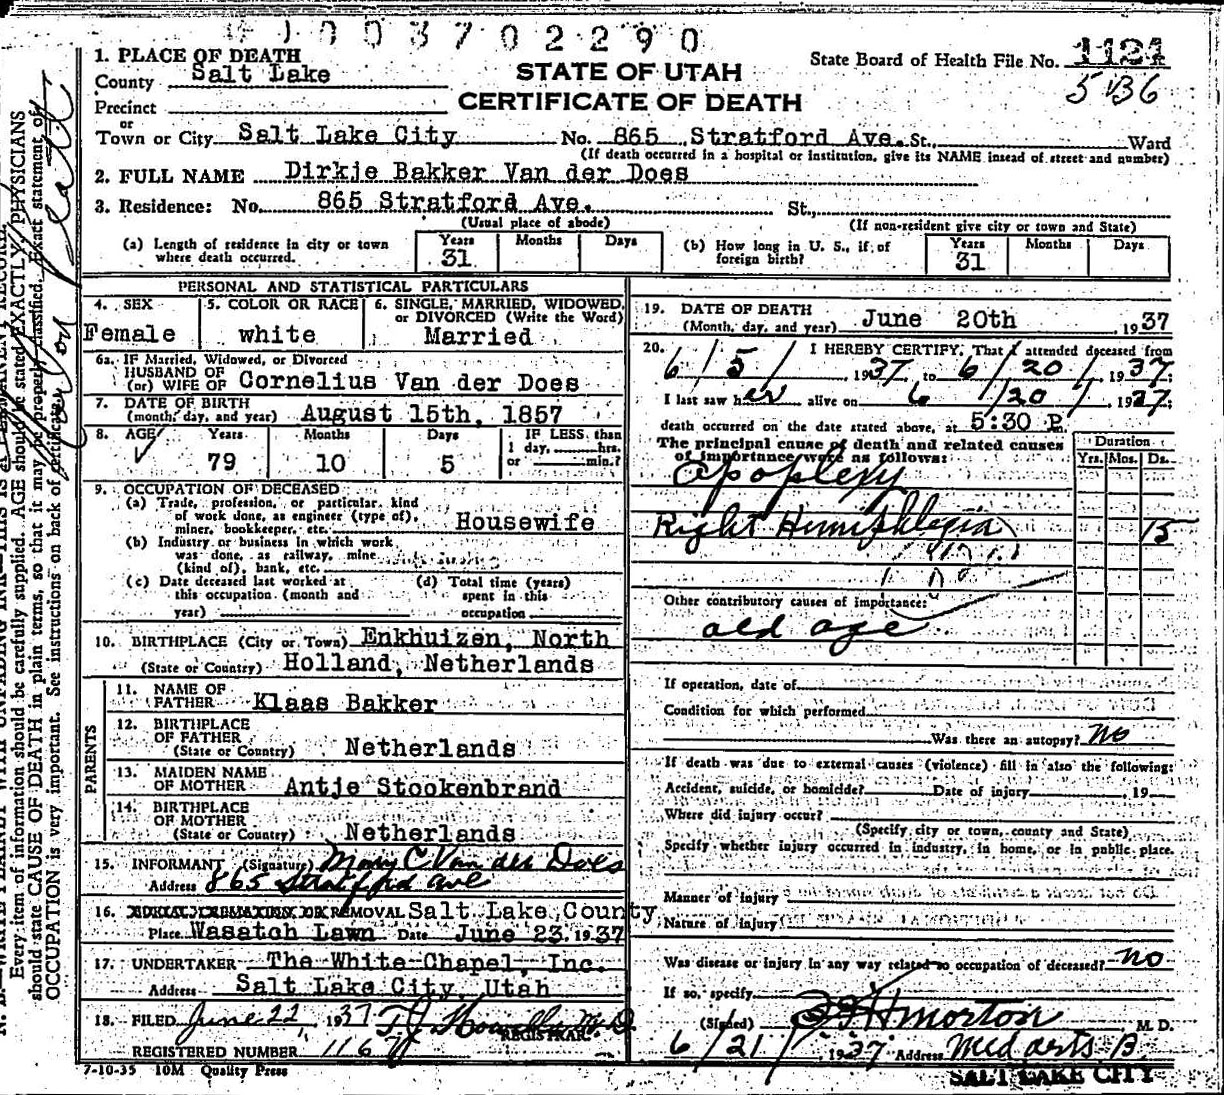 1003702290
1. PLACE OF DEATH
County Salt Lake
State Board of Health File No. 1124
STATE OF UTAH
536
Precinct
CERTIFICATE OF DEATH
or
Town or City Salt Lake City No. 865 Stratford Ave. St., Ward
(If death occurred in a hospital or institution, give its NAME insead of street and number)
2. FULL NAME Dirkje Bakker Van der Does
3. Residence: No. 865 Stratford Ave. St.,
(Usual place of abode) (If non-resident give city or town and State)
(a) Length of residence in city or town where death occurred. Years 31 Months Days
(b) How long in U. S., if of foreign birth? Years 31 Months Days
PERSONAL AND STATISTICAL PARTICULARS
4. SEX Female
5. COLOR OR RACE white
6. SINGLE, MARRIED, WIDOWED, or DIVORCED (Write the Word) Married
6a. IF Married, Widowed, or Divorced
HUSBAND OF
(or) WIFE OF Cornelius Van der Does
7. DATE OF BIRTH
(month, day, and year) August 15th, 1857
8. AGE Years 79 Months 10 Days 5
IF LESS than
1 day, hrs.
or min.?
9. OCCUPATION OF DECEASED
(a) Trade, profession, or particular, kind
of work done, as engineer (type of),
miner, bookkeeper, etc. Housewife
(b) Industry or business in which work
was done, as railway, mine
(kind of), bank, etc.
(c) Date deceased last worked at
this occupation. (month and
year)
(d) Total time (years)
spent in this
occupation
10. BIRTHPLACE (City or Town) Enkhuizen, North
(State or Country) Holland, Netherlands
PARENTS
11. NAME OF
FATHER Klaas Bakker
12. BIRTHPLACE
OF FATHER
(State or Country) Netherlands
13. MAIDEN NAME
OF MOTHER Antje Stookenbrand
14. BIRTHPLACE
OF MOTHER
(State or Country) Netherlands
15. INFORMANT (Signature) Mary C Van der Does
Address 865 Stratford ave
16. BURIAL, CREMATION OR REMOVAL Salt Lake County
Place Wasatch Lawn Date June 23 1937
17. UNDERTAKER The White Chapel, Inc.
Address Salt Lake City, Utah
18. FILED June 22 1937 T. J. Howells M.D.
REGISTRAR
REGISTERED NUMBER 1167
7-10-35 10M Quality Press
19. DATE OF DEATH
(Month, day, and year) June 20th 1937
20. I HEREBY CERTIFY, That I attended deceased from
6/5/ 1937, to 6/20/, 1937.
I last saw her alive on 6/20/, 1937;
death occurred on the date stated above, at 5:30 P.
The principal cause of death and related causes
of importance were as follows:
Duration
Yrs. Mos. Ds.
Apoplexy
Right Hemiphlegia 15
Other contributory causes of importance:
old age
If operation, date of
Condition for which performed
Was there an autopsy? no
If death was due to external causes (violence) fill in also the following:
Accident, suicide, or homicide? Date of injury , 19
Where did injury occur?
(Specify city or town, county and State)
Specify whether injury occurred in industry, in home, or in public place.
Manner of injury
Nature of injury
Was disease or injury in any way related to occupation of deceased? no
If so, specify
(Signed) Morton M. D.
6/21/, 1937 Address Med arts B.
SALT LAKE CITY
Every item of information should be carefully supplied. AGE should be stated EXACTLY. PHYSICIANS
should state CAUSE OF DEATH in plain terms, so that it may be properly classified. Exact statement of
OCCUPATION is very important. See instructions on back of certificate.